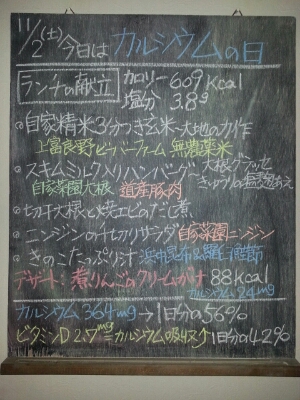 11/2(土)今日は カルシウムの日
ランチの献立 カロリー 609 Kcal
塩分 3.8g
自家精米3分づき玄米~大地の力作
上富良野ビーバーファーム 無農薬米
スキムミルク入りハンバーグ 大根グラッセ
自家菜園大根 道産豚肉 きゅうりの
切干大根と焼エビのだし煮
ニンジンの千切りサラダ 自家菜園ニンジン
きのこたっぷり汁 浜中昆布&羅臼
デザート: 煮りんごのクリームがけ 88 Kcal
カルシウム 24mg
カルシウム 364mg → 1日分の56%
ビタミンD 2.7mg=カルシウム吸収↗ 1日分の42%